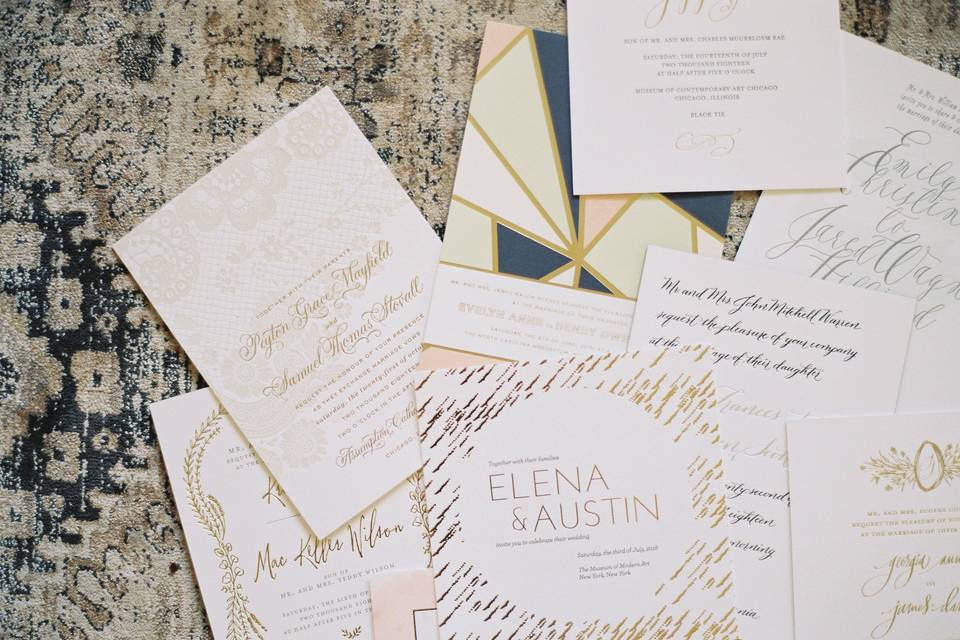 SON OF MR. AND MRS. CHARLES MUURSLOEM RAE
SATURDAY, THE FOURTEENTH OF JULY
TWO THOUSAND EIGHTEEN
AT HALF AFTER FIVE O'CLOCK
MUSEUM OF CONTEMPORARY ART CHICAGO
CHICAGO, ILLINOIS
BLACK TIE
Mr. & Mrs. William
invite you to there
the marriage of their
Emily
Christin
to
Jared Wagn
TOGETHER WITH THEIR PARENTS
Peyton Grace Mayfield
and
Samuel Thomas Stovall
REQUEST THE HONOUR OF YOUR PRESENCE
AS THEY EXCHANGE MARRIAGE VOWS
Saturday, the twenty-first of
TWO THOUSAND EIGHTEEN
TWO O'CLOCK IN THE
Assumption
CHICAGO,
MR. AND MRS. JAMES
AT THE MARRIAGE OF THEIR
EVELYN ANNE to HENRY
SATURDAY, THE
NATIONAL
Mr. and Mrs. John Mitchell Warren
request the pleasure of your company
at the marriage of their daughter
Frances
twenty-second
eighteen
morning
Together with their families
ELENA
& AUSTIN
invite you to celebrate their wedding
Saturday, the third of July, 2018
The Museum of Modern Art
New York, New York
MR.
REQUEST
Mac Killer Wilson
SON OF
MR. AND MRS. TEDDY WILSON
SATURDAY, THE SIXTH OF
TWO THOUSAND
AT HALF AFTER
MR. AND MRS. EUGENE
REQUEST THE PLEASURE OF
AT THE MARRIAGE OF THEIR
georgia
james